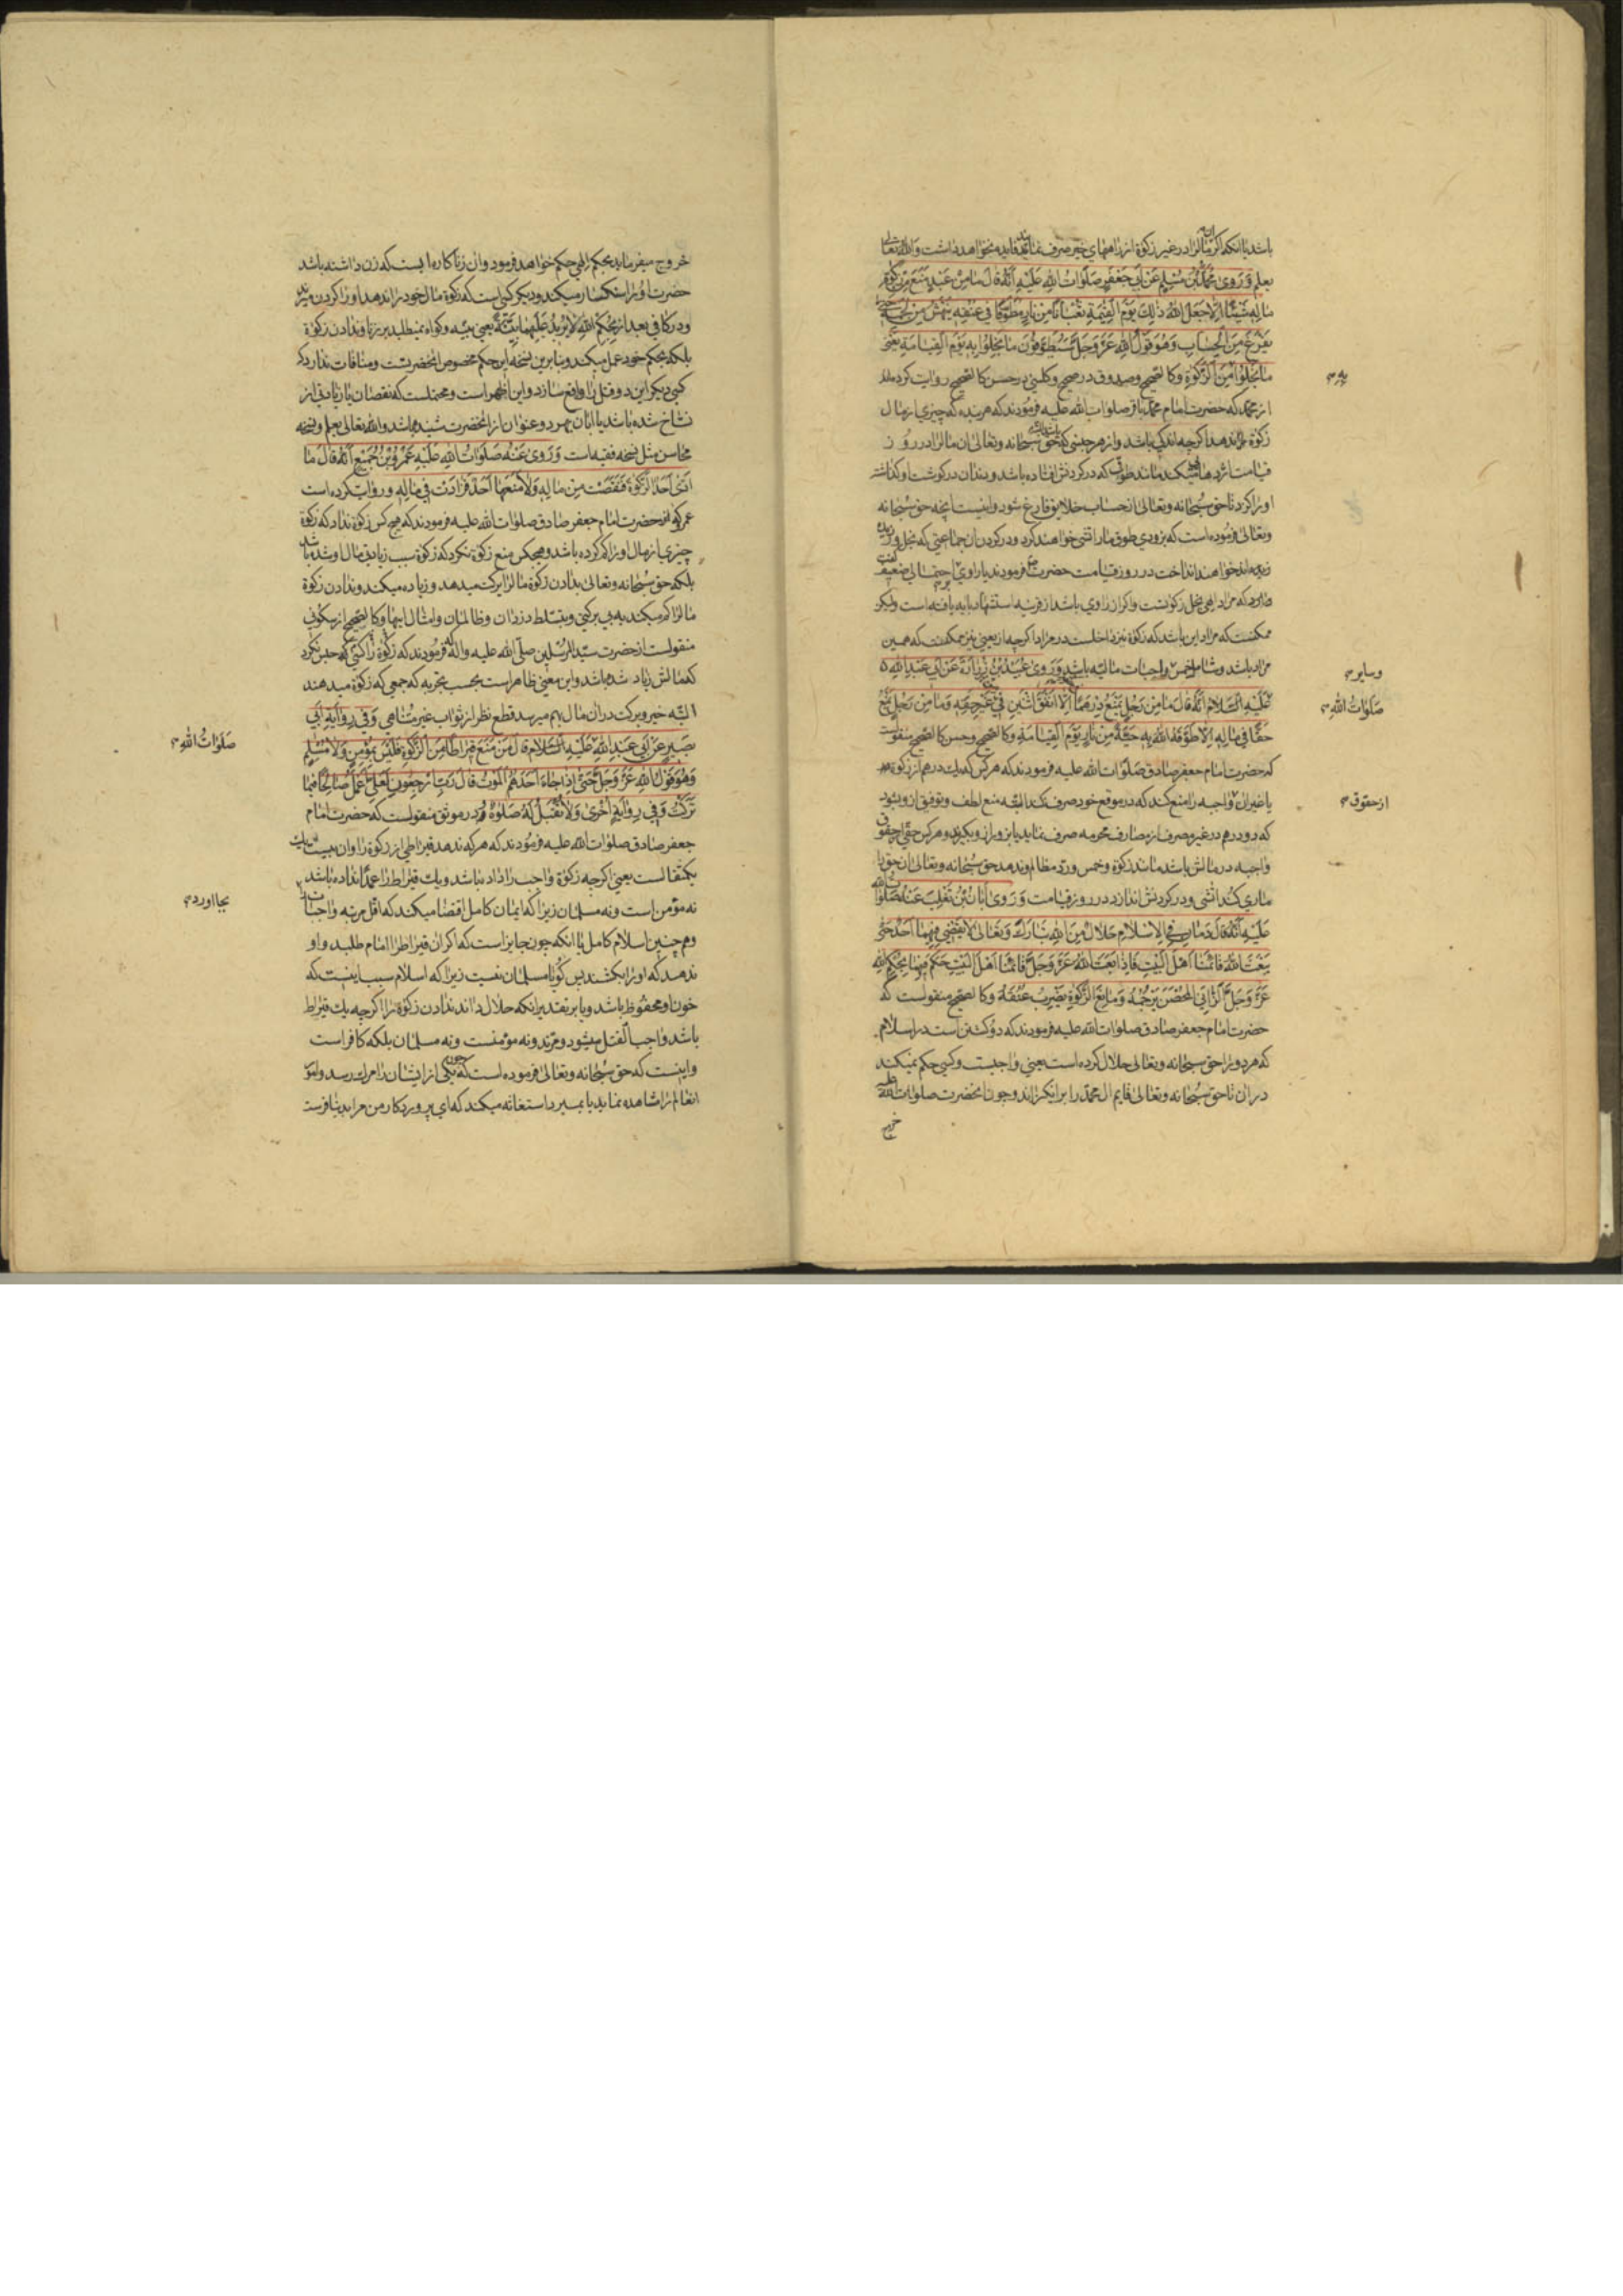 باشد یا انکه اکر مالرا در غیر زکوة از راههای خیر صرف نماید فایده نخواهد داشت والله تعالی
یعلم وَرَوی مُحَمَّدُ بْنُ مُسْلِمٍ عَنْ اَبی جَعْفَرٍ صَلَوٰاتُ اللهِ عَلَیْهِ اَنَّهُ قٰالَ مٰا مِنْ عَبْدٍ مَنَعَ مِنْ زَکٰوةِ
مٰالِهِ شَیْئًا اِلّٰا جَعَلَ اللهُ ذٰلِکَ یَوْمَ الْقِیٰمَةِ ثُعْبٰانًا مِنْ نٰارٍ مُطَوَّقًا فی عُنُقِهِ یَنْهَشُ مِنْ لَحْمِهِ حَتّٰی
یَفْرُغَ مِنَ الْحِسٰابِ وَهُوَ قَوْلُ اللهِ عَزَّ وَجَلَّ سَیُطَوَّقُونَ مٰا بَخِلُوا بِهِ یَوْمَ الْقِیٰامَةِ یَعْنی
مٰا بَخِلُوا مِنَ الزَّکٰوةِ وکالصحیح وصدوق در صحیح وکلینی در حسن کالصحیح روایت کرده‌اند
از محمد که حضرت امام محمد باقر صلوات الله علیه فرمودند که هر بنده که چیزی از مال
زکوة ندهد اکرچه اندکی باشد واز هر جنسی که باشد حق سبحانه وتعالی ان مالرا در روز
قیامت اژدها میکند مانند طوقی که در کردنش افتاده باشد ودندان در کوشت او کذاشته
او را کزد تا حق سبحانه وتعالی از حساب خلایق فارغ شود واینست انچه حق سبحانه
وتعالی فرموده است که بزودی طوق مار اتشی خواهند کرد ودر کردن ان جماعتی که بخل ورزیده
اند خواهند انداخت در روز قیامت حضرت فرمودند یا راوی احتمالی ضعیف
دارد که مراد الهی بخل زکوتست واکر از راوی باشد از قرینه استشهاد بایه یافته است ولیکن
ممکنست که مراد این باشد که زکوة نیز داخلست در مراد اکرچه از یعنی نیز ممکنست که همین
مراد باشد وشامل خمس وواجبات مالیه باشد وَرَوی عُبَیْدُ بْنُ زُرٰارَةَ عَنْ اَبی عَبْدِ اللهِ
عَلَیْهِ السَّلٰامُ اَنَّهُ قٰالَ مٰا مِنْ رَجُلٍ یَمْنَعُ دِرْهَمًا اِلّٰا اَنْفَقَ اثْنَیْنِ فی غَیْرِ حَقِّهِ وَمٰا مِنْ رَجُلٍ یَمْنَعُ
حَقًّا فی مٰالِهِ اِلّٰا طَوَّقَهُ اللهُ بِهِ حَیَّةً مِنْ نٰارٍ یَوْمَ الْقِیٰامَةِ وکالصحیح وحسن کالصحیح منقولست
که حضرت امام جعفر صادق صلوات الله علیه فرمودند که هر کس که یک درهم از زکوة
یا غیر ان واجبه را منع کند که در موقع خود صرف نکند البته منع لطف وتوفیق ازو بشود
که دو درهم در غیر مصرف از مصارف محرمه صرف نماید یا بزور ازو بکیرند وهر کس حقی از حقوق
واجبه در مالش باشد مانند زکوة وخمس ورد مظالم وندهد حق سبحانه وتعالی ان حق را
ماری کند اتشی ودر کردنش اندازد در روز قیامت وَرَوی اَبٰانُ بْنُ تَغْلِبَ عَنْهُ صَلَوٰاتُ اللهِ
عَلَیْهِ اَنَّهُ قٰالَ دَمٰانِ فِی الْاِسْلٰامِ حَلٰالٌ مِنَ اللهِ تَبٰارَکَ وَتَعٰالیٰ لٰا یَقْضی فیهِمٰا اَحَدٌ حَتّٰی
یَبْعَثَ اللهُ قٰائِمَنٰا اَهْلَ الْبَیْتِ فَاِذٰا بَعَثَ اللهُ عَزَّ وَجَلَّ قٰائِمَنٰا اَهْلَ الْبَیْتِ حَکَمَ فیهِمٰا بِحُکْمِ اللهِ
عَزَّ وَجَلَّ الزّٰانِی الْمُحْصَنُ یَرْجُمُهُ وَمٰانِعُ الزَّکٰوةِ یَضْرِبُ عُنُقَهُ وکالصحیح منقولست که
حضرت امام جعفر صادق صلوات الله علیه فرمودند که دو کشتن است در اسلام
که هر دو را حق سبحانه وتعالی حلال کرده است یعنی واجبست وکسی حکم نمیکند
در ان تا حق سبحانه وتعالی قایم ال محمد را برانکیزاند وچون انحضرت صلوات الله علیه
خروج
وسایر
صَلَوٰاتُ اللهِ
از حقوق
خروج میفرماید بحکم الهی حکم خواهد فرمود وان زناکارها یست که زن داشته باشد
حضرت او را سنکسار میکند ودیکر کسیست که زکوة مال خود را ندهد او را کردن میزند
ودر کافی بعد از بِحُکْمِ اللهِ لٰا یُریدُ عَلَیْهِمٰا بَیِّنَةً یعنی بینه وکواه نمیطلبد بر زنا وندادن زکوة
بلکه بحکم خود عمل میکند وبنابرین نسخه این حکم مخصوص انحضرتست ومنافات ندارد که
کسی دیکر این دو قتل را واقع سازد واین اظهر است ومحتملست که نقصان یا زیادتی از
نساخ شده باشد یا ابان بهر دو عنوان از انحضرت شنیده باشد والله تعالی یعلم ونسخه
محاسن مثل نسخه فقیه است وَرَوی عَنْهُ صَلَوٰاتُ اللهِ عَلَیْهِ عَمْرُو بْنُ جُمَیْعٍ اَنَّهُ قٰالَ مٰا
اَدّٰی اَحَدٌ الزَّکٰوةَ فَنَقَصَتْ مِنْ مٰالِهِ وَلٰا مَنَعَهٰا اَحَدٌ فَزٰادَتْ فی مٰالِهِ وروایت کرده است
عمرو که از حضرت امام جعفر صادق صلوات الله علیه فرمودند که هیچ کس زکوة نداد که زکوة
چیزی از مال او را کم کرده باشد وهیچکس منع زکوة نکرد که زکوة سبب زیادتی مال او شده باشد
بلکه حق سبحانه وتعالی بدادن زکوة مالرا برکت میدهد وزیاده میکند وندادن زکوة
مالرا کم میکند به بی برکتی وبتسلط دزدان وظالمان وامثال اینها وکالصحیح از سکونی
منقولست از حضرت سید المرسلین صلی الله علیه واله که فرمودند که زکوة را کسی حبس نکرد
که مالش زیاد شده باشد واین معنی ظاهر است بحسب تجربه که جمعی که زکوة میدهند
البته خیر وبرکت دران مال بهم میرسد قطع نظر از ثواب غیر متناهی وَفی رِوٰایَةِ اَبی
بَصیرٍ عَنْ اَبی عَبْدِ اللهِ عَلَیْهِ السَّلٰامُ قٰالَ مَنْ مَنَعَ قیرٰاطًا مِنَ الزَّکٰوةِ فَلَیْسَ بِمُؤْمِنٍ وَلٰا مُسْلِمٍ
وَهُوَ قَوْلُ اللهِ عَزَّ وَجَلَّ حَتّٰی اِذٰا جٰاءَ اَحَدَهُمُ الْمَوْتُ قٰالَ رَبِّ ارْجِعُونِ لَعَلّی اَعْمَلُ صٰالِحًا فیمٰا
تَرَکْتُ وَفی رِوٰایَةٍ اُخْریٰ وَلٰا تُقْبَلُ لَهُ صَلٰوةٌ ودر موثق منقولست که حضرت امام
جعفر صادق صلوات الله علیه فرمودند که هر که ندهد قیراطی از زکوة را وان بیست یک
یکمثقالست یعنی اکرچه زکوة واجب را داده باشد ویک قیراط را عمدا نداده باشد
نه مؤمن است ونه مسلمان زیرا که ایمان کامل اقتضا میکند که اقل مرتبه واجبات را
وهم چنین اسلام کامل یا انکه چون جایز است که اکر ان قیراط را امام طلبد واو
ندهد که او را بکشند پس کویا مسلمان نیست زیرا که اسلام سبب اینست که
خون او محفوظ باشد ویا بر تقدیر انکه حلال داند ندادن زکوة را اکرچه یک قیراط
باشد واجب القتل میشود ومرتد ونه مؤمنست ونه مسلمان بلکه کافر است
واینست که حق سبحانه وتعالی فرموده است که چون یکی از ایشان را مرک رسد واو
انعالم را مشاهده نماید یا بمیرد استغاثه میکند که ای پروردکار من مرا بدنیا فرست
صَلَوٰاتُ اللهِ
بجا اورد